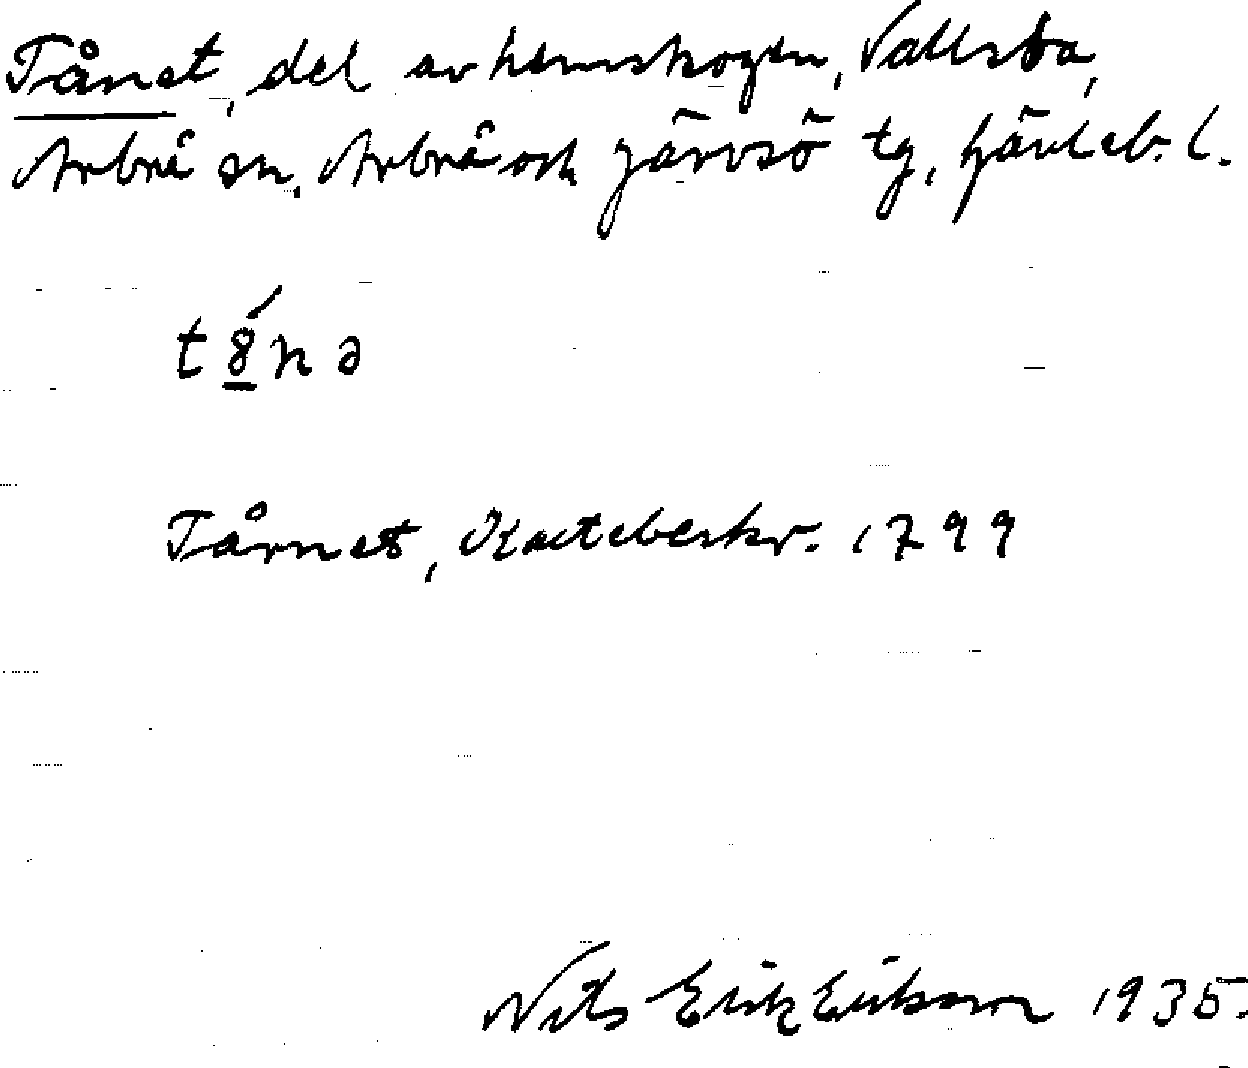 Tånet, del av hemskogen, Vallsta,
Arbrå sn, Arbrå och Järvsö tg, Gävleb. l.
tȣ́nə
Tårnet, Kartebeskr. 1799
Nils Erik Eriksson 1935.